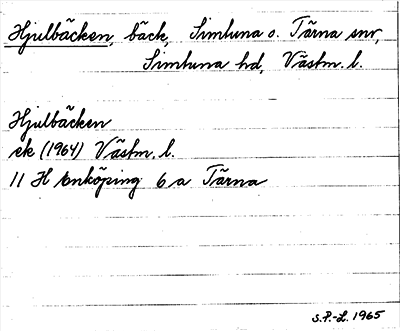 Hjulbäcken, bäck, Simtuna o. Tärna snr,
Simtuna hd, Västm. l.
Hjulbäcken
ek (1964) Västm. l.
11 H Enköping 6 a Tärna
S.P.-L. 1965